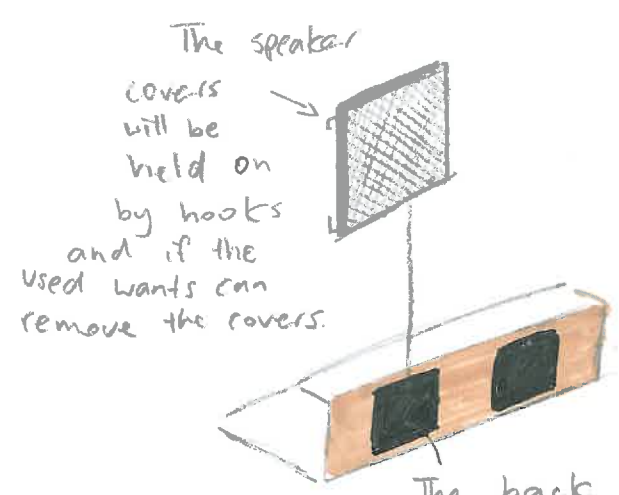 The speaker
covers
will be
held on
by hooks
and if the
used wants can
remove the covers.
The back